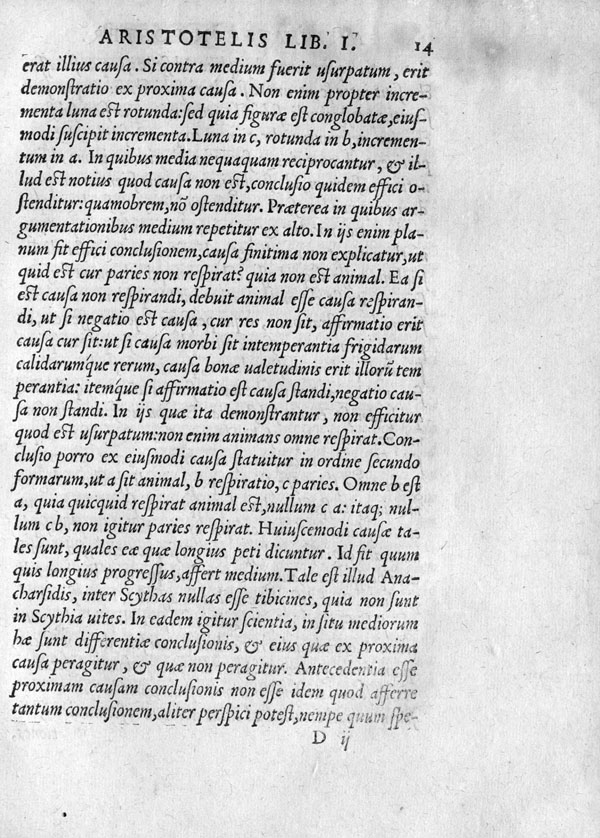 ARISTOTELIS LIB. I. 14
erat illius causa. Si contra medium fuerit usurpatum, erit
demonstratio ex proxima causa. Non enim propter incre-
menta luna est rotunda: sed quia figuræ est conglobatæ, eius-
modi suscipit incrementa. Luna in c, rotunda in b, incremen-
tum in a. In quibus media nequaquam reciprocantur, & il-
lud est notius quod causa non est, conclusio quidem effici o-
stenditur: quamobrem, nō ostenditur. Præterea in quibus ar-
gumentationibus medium repetitur ex alto. In ijs enim pla-
num fit effici conclusionem, causa finitima non explicatur, ut
quid est cur paries non respirat? quia non est animal. Ea si
est causa non respirandi, debuit animal esse causa respiran-
di, ut si negatio est causa, cur res non sit, affirmatio erit
causa cur sit: ut si causa morbi sit intemperantia frigidarum
calidarumq́ue rerum, causa bonæ ualetudinis erit illorū tem
perantia: itemq́ue si affirmatio est causa standi, negatio cau-
sa non standi. In ijs quæ ita demonstrantur, non efficitur
quod est usurpatum: non enim animans omne respirat. Con-
clusio porro ex eiusmodi causa statuitur in ordine secundo
formarum, ut a sit animal, b respiratio, c paries. Omne b est
a, quia quicquid respirat animal est, nullum c a: itaq; nul-
lum c b, non igitur paries respirat. Huiuscemodi causæ ta-
les sunt, quales eæ quæ longius peti dicuntur. Id fit quum
quis longius progressus, affert medium. Tale est illud Ana-
charsidis, inter Scythas nullas esse tibicines, quia non sunt
in Scythia uites. In eadem igitur scientia, in situ mediorum
hæ sunt differentiæ conclusionis, & eius quæ ex proxima
causa peragitur, & quæ non peragitur. Antecedentia esse
proximam causam conclusionis non esse idem quod afferre
tantum conclusionem, aliter perspici potest, nempe quum spe-
D ij